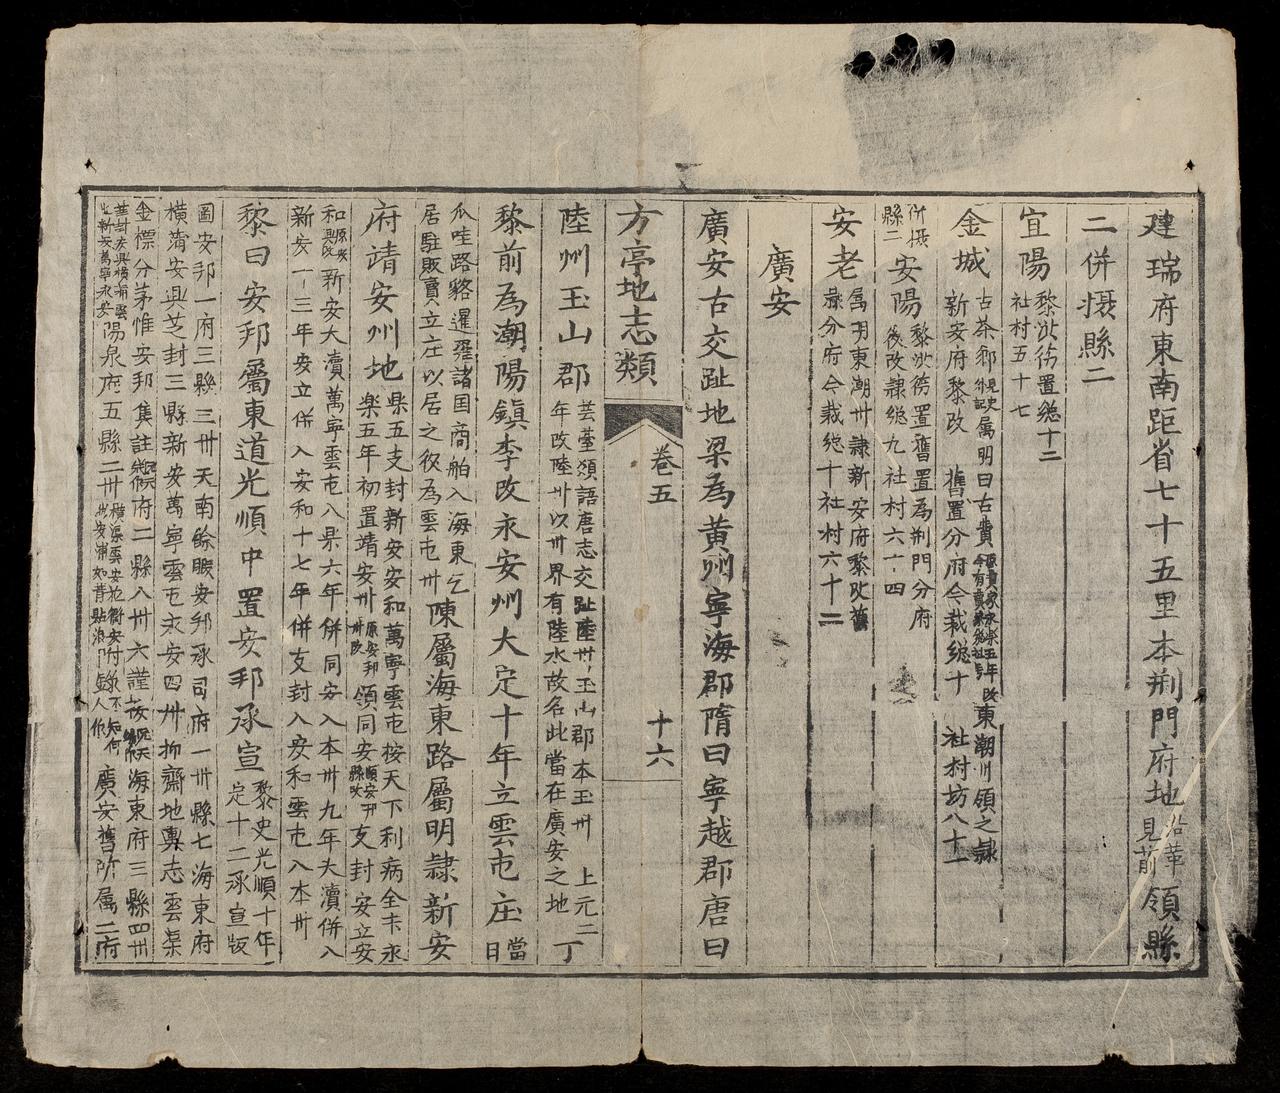 建瑞府東南距省七十五里本荆門府地沿革見前領縣
二併摄縣二
宜陽黎洪德置總十二社村五十七
金城古荼鄉見史記属明曰古費東潮州領之隸新安府黎改舊置分府今裁總十社村坊八十一
併摄縣二安陽黎洪德置舊置為荆門分府後改隷總九社村六十四
安老属明東潮州隷新安府黎改舊彔分府今裁總十社村六十二
廣安
廣安古交趾地梁為黃州寧海郡隋曰寧越郡唐曰
方亭地志類
卷五
十六
陸州玉山郡芸薹類語唐志交趾陸州玉山郡本玉州上元二年改陸州以州界有陸水故名此當在廣安之地丁
黎前為潮陽鎮李改永安州大定十年立雲屯庄當日
爪哇路貉暹羅諸国商舶入海東乞居駐販賣立庄以居之後為雲屯州陳屬海東路屬明隷新安
府靖安州地県五支封新安安和萬寧雲屯按天下利病全未永樂五年初置靖安州領同安支封安立安
和新安大瀆萬寧雲屯八県六年併同安入本州九年大瀆併入新安十三年安立併入安和十七年併支封入安和雲屯入本州
黎曰安邦屬東道光順中置安邦承宣黎史光順十年定十二承宣版
圖安邦一府三縣三州天南餘暇安邦承司府一州縣七海東府橫蒲安興芝封三縣新安萬寧雲屯永安四州抑齋地輿志雲渠
金標分茅惟安邦集註府二縣八州六謹海東府三縣四州陽泉府五縣二州附錄廣安舊所属二府